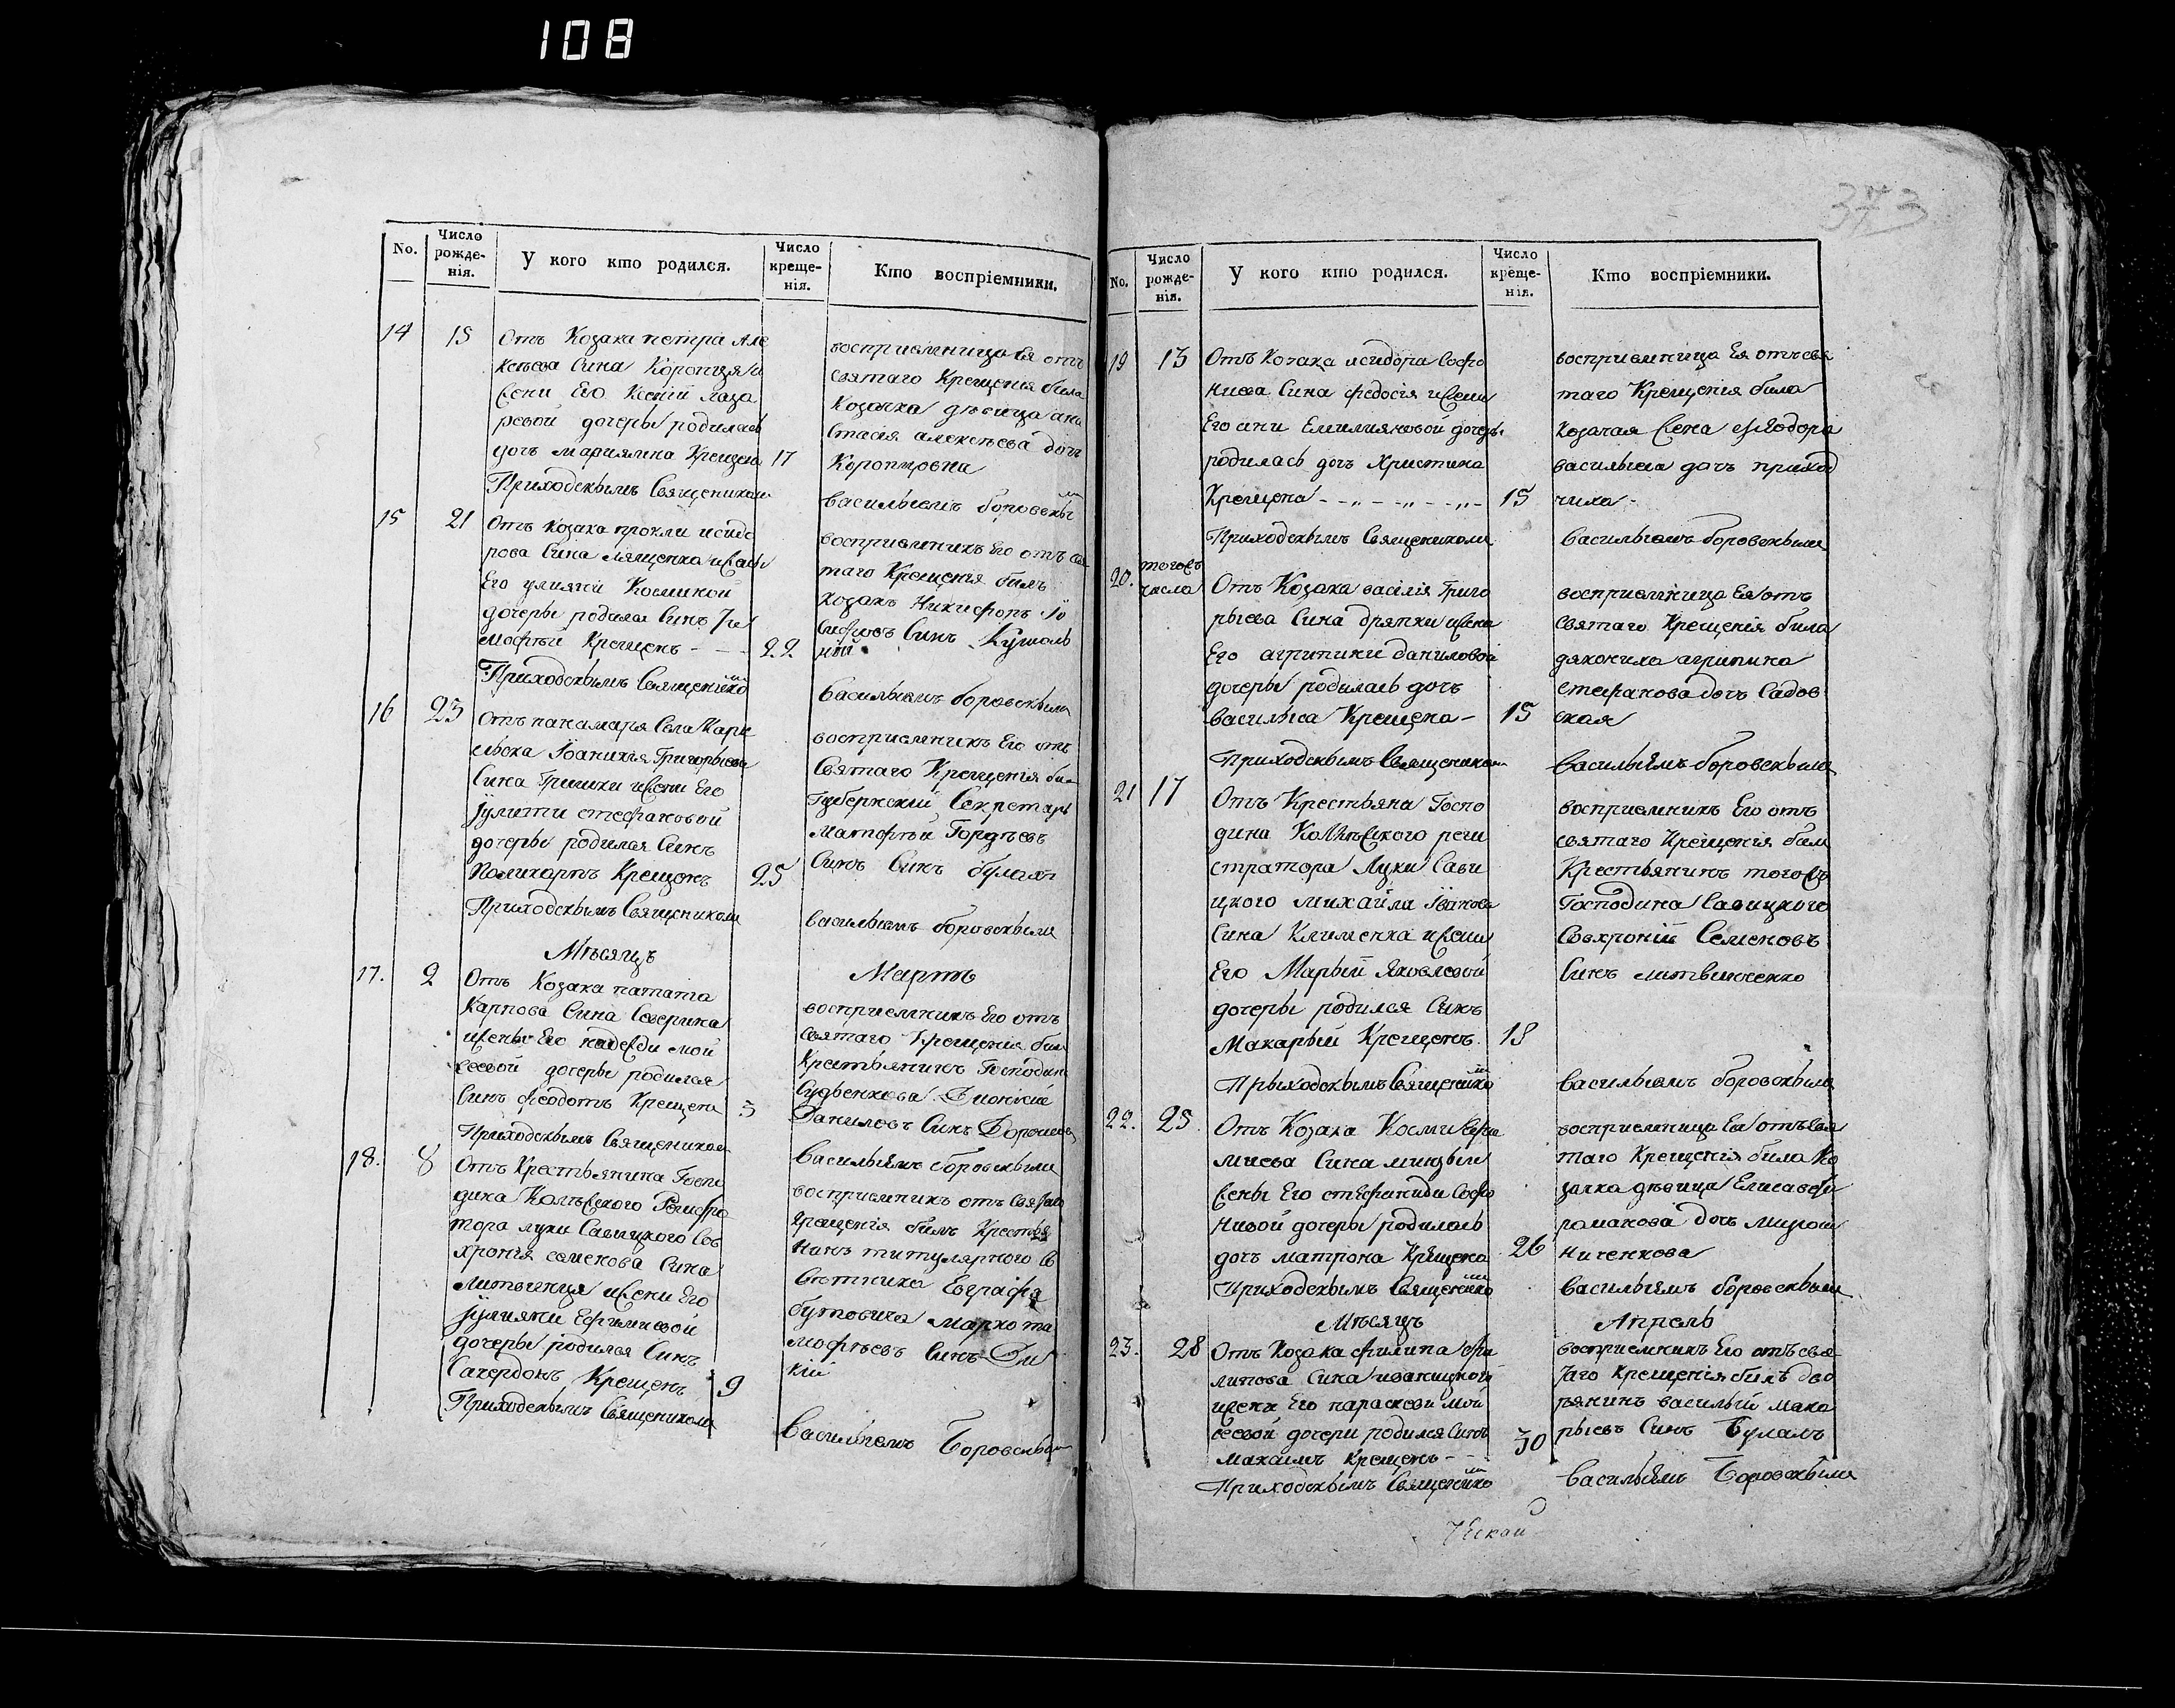 108
373
No. Число рожденія. У кого кто родился. Число крещенія. Кто воспріемники.
14 15 Отъ Козака петра Але
ксѣева Сина
Жени Его Ксеніи Лаза
ревой дочеры родилась
дочь мариямна Крещена 17
Приходскымъ Священикомъ
воспрiемница Ея отъ
святаго Крещенія била
Козачка дѣвица ана
стасія алексѣева дочь
Коропцовна
васильемъ боровскым
15 21 Отъ козака прокли исидо
рова Сина Лященка иЖены
Его улияни Косминой
дочеры родился Синъ Ти
мофтей Крещенъ - - - 22
Приходскымъ Священико м
воспрiемникъ Его отъ свя
таго Крещенія билъ
козакъ Никифоръ Iо
сифовъ Синъ Кушоль
ній
васильемъ боровскымъ
16 23 Отъ панамаря Села Каре
льска Iоаникія Григорьева
Сина Гришки иЖени Его
Iулити стефановой
дочеры родился Синъ
Поликарпъ Крещенъ 25
Приходскымъ Священикомъ
воспрiемникъ Его отъ
Святаго Крещенія би
Губернскій Секретарь
Матфтей Гордѣевъ
Синъ Синъ булахъ
васильемъ боровскымъ
Мѣсяцъ Мартъ
17. 2 Отъ Козака патапа
Карпова Сина Северина
иЖены Его надежди мой
сеевой дочеры родился
Синъ феодотъ Крещенъ 3
Приходскымъ Священикомъ
воспрiемникъ Его отъ
Святаго Крещенія бил
Крестьянинъ Господина
Судьенкова Дионисіе
Даниловъ Синъ
Васильемъ боровскымъ
18. 8 Отъ Крестьянина Госпо
дина Колѣжского Регистра
тора луки Савицкого Сов
хронія семенова Сина
литвинця иЖени Его
Iулияни Ефимиевой
дочеры родился Синъ
Сачердонъ Крещенъ 9
Приходскымъ Священикомъ
воспрiемникъ отъ Святаго
Крещенія билъ Крестья
нинъ титулярного Со
вѣтника Евграфа
бутовича марко ти
мофѣевъ Синъ Ди
кій
Васильемъ Боровскым
No. Число рожденія. У кого кто родился. Число крещенія. Кто воспріемники.
19 13 Отъ Козака исидора Софо
ниева Сина федосія иЖени
Его ани Емилияновой дочеры
родилась дочь Христина
Крещена - - „ - - „ - - „ - 15
Приходскымъ Священикомъ
воспрiемница Ея отъ свя
таго Крещенія била
козачая Жена феодора
васильева дочь приход
чиха -
Васильемъ боровскымъ
20. тогожъ числа Отъ Козака василія Григо
рьева Сина дряпки иЖени
Его агрипини даниловой
дочеры родилась дочь
василиса Крещена - 15
Приходскымъ Священикомъ
воспрiемница Ея отъ
святаго Крещенія била
дякониха агрипина
стефанова дочь Садов
ская
васильемъ боровскымъ
21 17 Отъ Крестьяна Госпо
дина Колѣжского реги
стратора Луки Сави
цкого михаила Iванова
Сина Клименка иЖени
Его Марьiй Яковлевой
дочеры родился Синъ
Макарый Крещенъ 18
Прыходскымъ Священико м
воспрiемникъ Его отъ
святаго Крещенія бил
Крестьянинъ тогожъ
Господина Савицкого
Совхроній Семеновъ
Синъ литвиненко
васильемъ боровскымъ
22. 25 Отъ Козака Косми
миева Сина
Жены Его стефаниди Софо
нивой дочеры родилась
дочь матрона Крещена 26
Приходскымъ Священико м
воспрiемница Ея отъ свя
таго Крещенія била Ко
зачка дѣвица Елисавефи
романова дочь мирош
ниченкова
васильемъ боровскымъ
Мѣсяцъ Апрель
23. 28 Отъ Козака филипа фи
липова Сина иваницкого
иЖени Его параскеви мой
сеевой дочери родился Синъ
максимъ крещенъ - - 30
Приходскымъ Священико м
воспрiемникъ Его отъ свя
таго Крещенія билъ дво
рянинъ василый мака
рьевъ Синъ Булахъ
васильемъ Боровскымъ